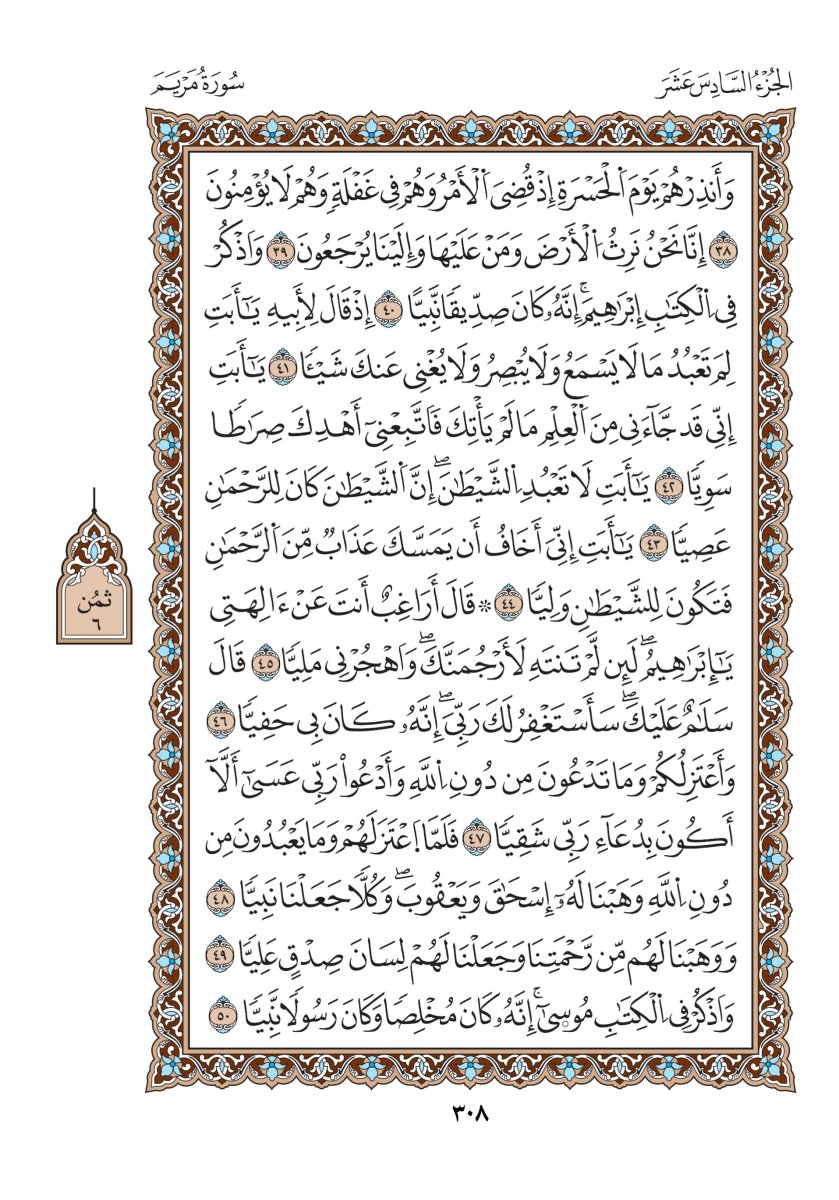 الجُزْءُ السَّادِسَ عَشَرَ
سُورَةُ مَرْيَمَ
وَأَنذِرْهُمْ يَوْمَ اَ۬لْحَسْرَةِ إِذْ قُضِيَ اَ۬لْأَمْرُ وَهُمْ فِي غَفْلَةٖ وَهُمْ لَا يُؤْمِنُونَ
٣٨ إِنَّا نَحْنُ نَرِثُ اُ۬لْأَرْضَ وَمَنْ عَلَيْهَا وَإِلَيْنَا يُرْجَعُونَ ٣٩ وَاَذْكُرْ
فِي اِ۬لْكِتَٰبِ إِبْرَٰهِيمَۚ إِنَّهُۥ كَانَ صِدِّيقٗا نَّبِيًّا ٤٠ إِذْ قَالَ لِأَبِيهِ يَٰٓأَبَتِ
لِمَ تَعْبُدُ مَا لَا يَسْمَعُ وَلَا يُبْصِرُ وَلَا يُغْنِي عَنكَ شَيْـٔٗا ٤١ يَٰٓأَبَتِ
إِنِّي قَدْ جَآءَنِي مِنَ اَ۬لْعِلْمِ مَا لَمْ يَأْتِكَ فَاَتَّبِعْنِيٓ أَهْدِكَ صِرَٰطٗا
سَوِيّٗا ٤٢ يَٰٓأَبَتِ لَا تَعْبُدِ اِ۬لشَّيْطَٰنَۖ إِنَّ اَ۬لشَّيْطَٰنَ كَانَ لِلرَّحْمَٰنِ
عَصِيّٗا ٤٣ يَٰٓأَبَتِ إِنِّيَ أَخَافُ أَن يَمَسَّكَ عَذَابٞ مِّنَ اَ۬لرَّحْمَٰنِ
فَتَكُونَ لِلشَّيْطَٰنِ وَلِيّٗا ٤٤ ۞ قَالَ أَرَاغِبٌ أَنتَ عَنْ ءَالِهَتِي
يَٰٓإِبْرَٰهِيمُۖ لَئِن لَّمْ تَنتَهِ لَأَرْجُمَنَّكَۖ وَاَهْجُرْنِي مَلِيّٗا ٤٥ قَالَ
سَلَٰمٌ عَلَيْكَۖ سَأَسْتَغْفِرُ لَكَ رَبِّيَۖ إِنَّهُۥ كَانَ بِي حَفِيّٗا ٤٦
وَأَعْتَزِلُكُمْ وَمَا تَدْعُونَ مِن دُونِ اِ۬للَّهِ وَأَدْعُواْ رَبِّي عَسَىٰٓ أَلَّآ
أَكُونَ بِدُعَآءِ رَبِّي شَقِيّٗا ٤٧ فَلَمَّا اَ۪عْتَزَلَهُمْ وَمَا يَعْبُدُونَ مِن
دُونِ اِ۬للَّهِ وَهَبْنَا لَهُۥٓ إِسْحَٰقَ وَيَعْقُوبَۖ وَكُلّٗا جَعَلْنَا نَبِيّٗا ٤٨
وَوَهَبْنَا لَهُم مِّن رَّحْمَتِنَا وَجَعَلْنَا لَهُمْ لِسَانَ صِدْقٍ عَلِيّٗا ٤٩
وَاَذْكُرْ فِي اِ۬لْكِتَٰبِ مُوسَىٰٓۚ إِنَّهُۥ كَانَ مُخْلِصٗا وَكَانَ رَسُولٗا نَّبِيّٗا ٥٠
ثُمُن
٦
٣٠٨